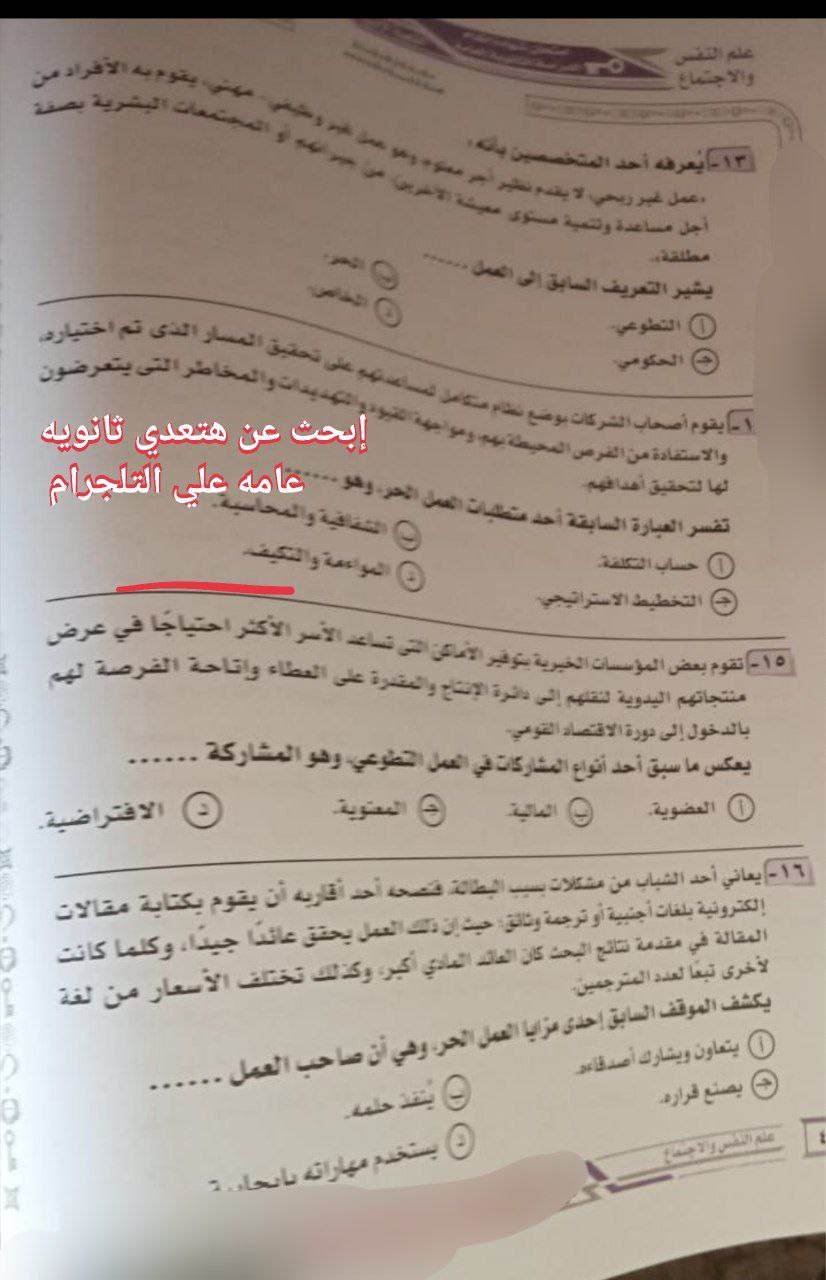 علم النفس
والاجتماع
١٣- يُعرفه أحد المتخصصين بأنه:
«عمل غير ربحي، لا يقدم نظير أجر معلوم، وهو عمل غير وظيفي - مهني، يقوم به الأفراد من
أجل مساعدة وتنمية مستوى معيشة الآخرين، من جيرانهم أو المجتمعات البشرية بصفة
مطلقة».
يشير التعريف السابق إلى العمل ......
أ التطوعي.
ب الحر.
جـ الحكومي.
د الخاص.
يقوم أصحاب الشركات بوضع نظام متكامل لمساعدتهم على تحقيق المسار الذى تم اختياره،
والاستفادة من الفرص المحيطة بهم، ومواجهة القيود والتهديدات والمخاطر التى يتعرضون
لها لتحقيق أهدافهم.
تفسر العبارة السابقة أحد متطلبات العمل الحر، وهو ......
إبحث عن هتعدي ثانويه
عامه علي التلجرام
أ حساب التكلفة.
ب الشفافية والمحاسبة.
جـ التخطيط الاستراتيجي.
د المواءمة والتكيف.
١٥- تقوم بعض المؤسسات الخيرية بتوفير الأماكن التى تساعد الأسر الأكثر احتياجًا في عرض
منتجاتهم اليدوية لنقلهم إلى دائرة الإنتاج والمقدرة على العطاء وإتاحة الفرصة لهم
بالدخول إلى دورة الاقتصاد القومي.
يعكس ما سبق أحد أنواع المشاركات في العمل التطوعي، وهو المشاركة ......
أ العضوية. ب المالية. جـ المعنوية. د الافتراضية.
١٦- يعاني أحد الشباب من مشكلات بسبب البطالة، فنصحه أحد أقاربه أن يقوم بكتابة مقالات
إلكترونية بلغات أجنبية أو ترجمة وثائق؛ حيث إن ذلك العمل يحقق عائدًا جيدًا، وكلما كانت
المقالة في مقدمة نتائج البحث كان العائد المادي أكبر، وكذلك تختلف الأسعار من لغة
لأخرى تبعًا لعدد المترجمين.
يكشف الموقف السابق إحدى مزايا العمل الحر، وهي أن صاحب العمل ......
أ يتعاون ويشارك أصدقاءه.
ب يُنفذ حلمه.
جـ يصنع قراره.
د يستخدم مهاراته بإيجابية
علم النفس والاجتماع
٤